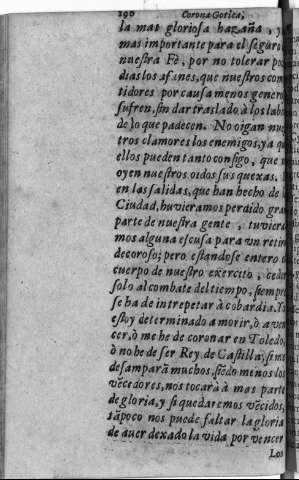 190 Corona Gotica,
la mas gloriosa hazaña, y
mas importante para el seguro
nuestra Fè, por no tolerar po
dias los afanes, que nuestros com
tidores por causa menos gener
sufren, sin dar traslado à los lab
de lo que padecen. No oigan nu
tros clamores los enemigos, ya q
ellos pueden tanto consigo, que n
oyen nuestros oidos sus quexas.
en las salidas, que han hecho de l
Ciudad, huvieramos perdido gra
parte de nuestra gente, tuviera
mos alguna escusa para vn retir
decoroso; pero estandose entero e
cuerpo de nuestro exercito, ceder
solo al combate del tiempo, siempre
se ha de intrepetar à cobardia. Yo
estoy determinado a morir, ò a ven
cer, ò me he de coronar en Toledo,
ò no he de ser Rey de Castilla; si me
desamparā muchos, siēdo menos los
vēcedores, nos tocarà à mas parte
de gloria, y si quedaremos vēcidos,
tāpoco nos puede faltar la gloria
de aver dexado la vida por vencer
Los